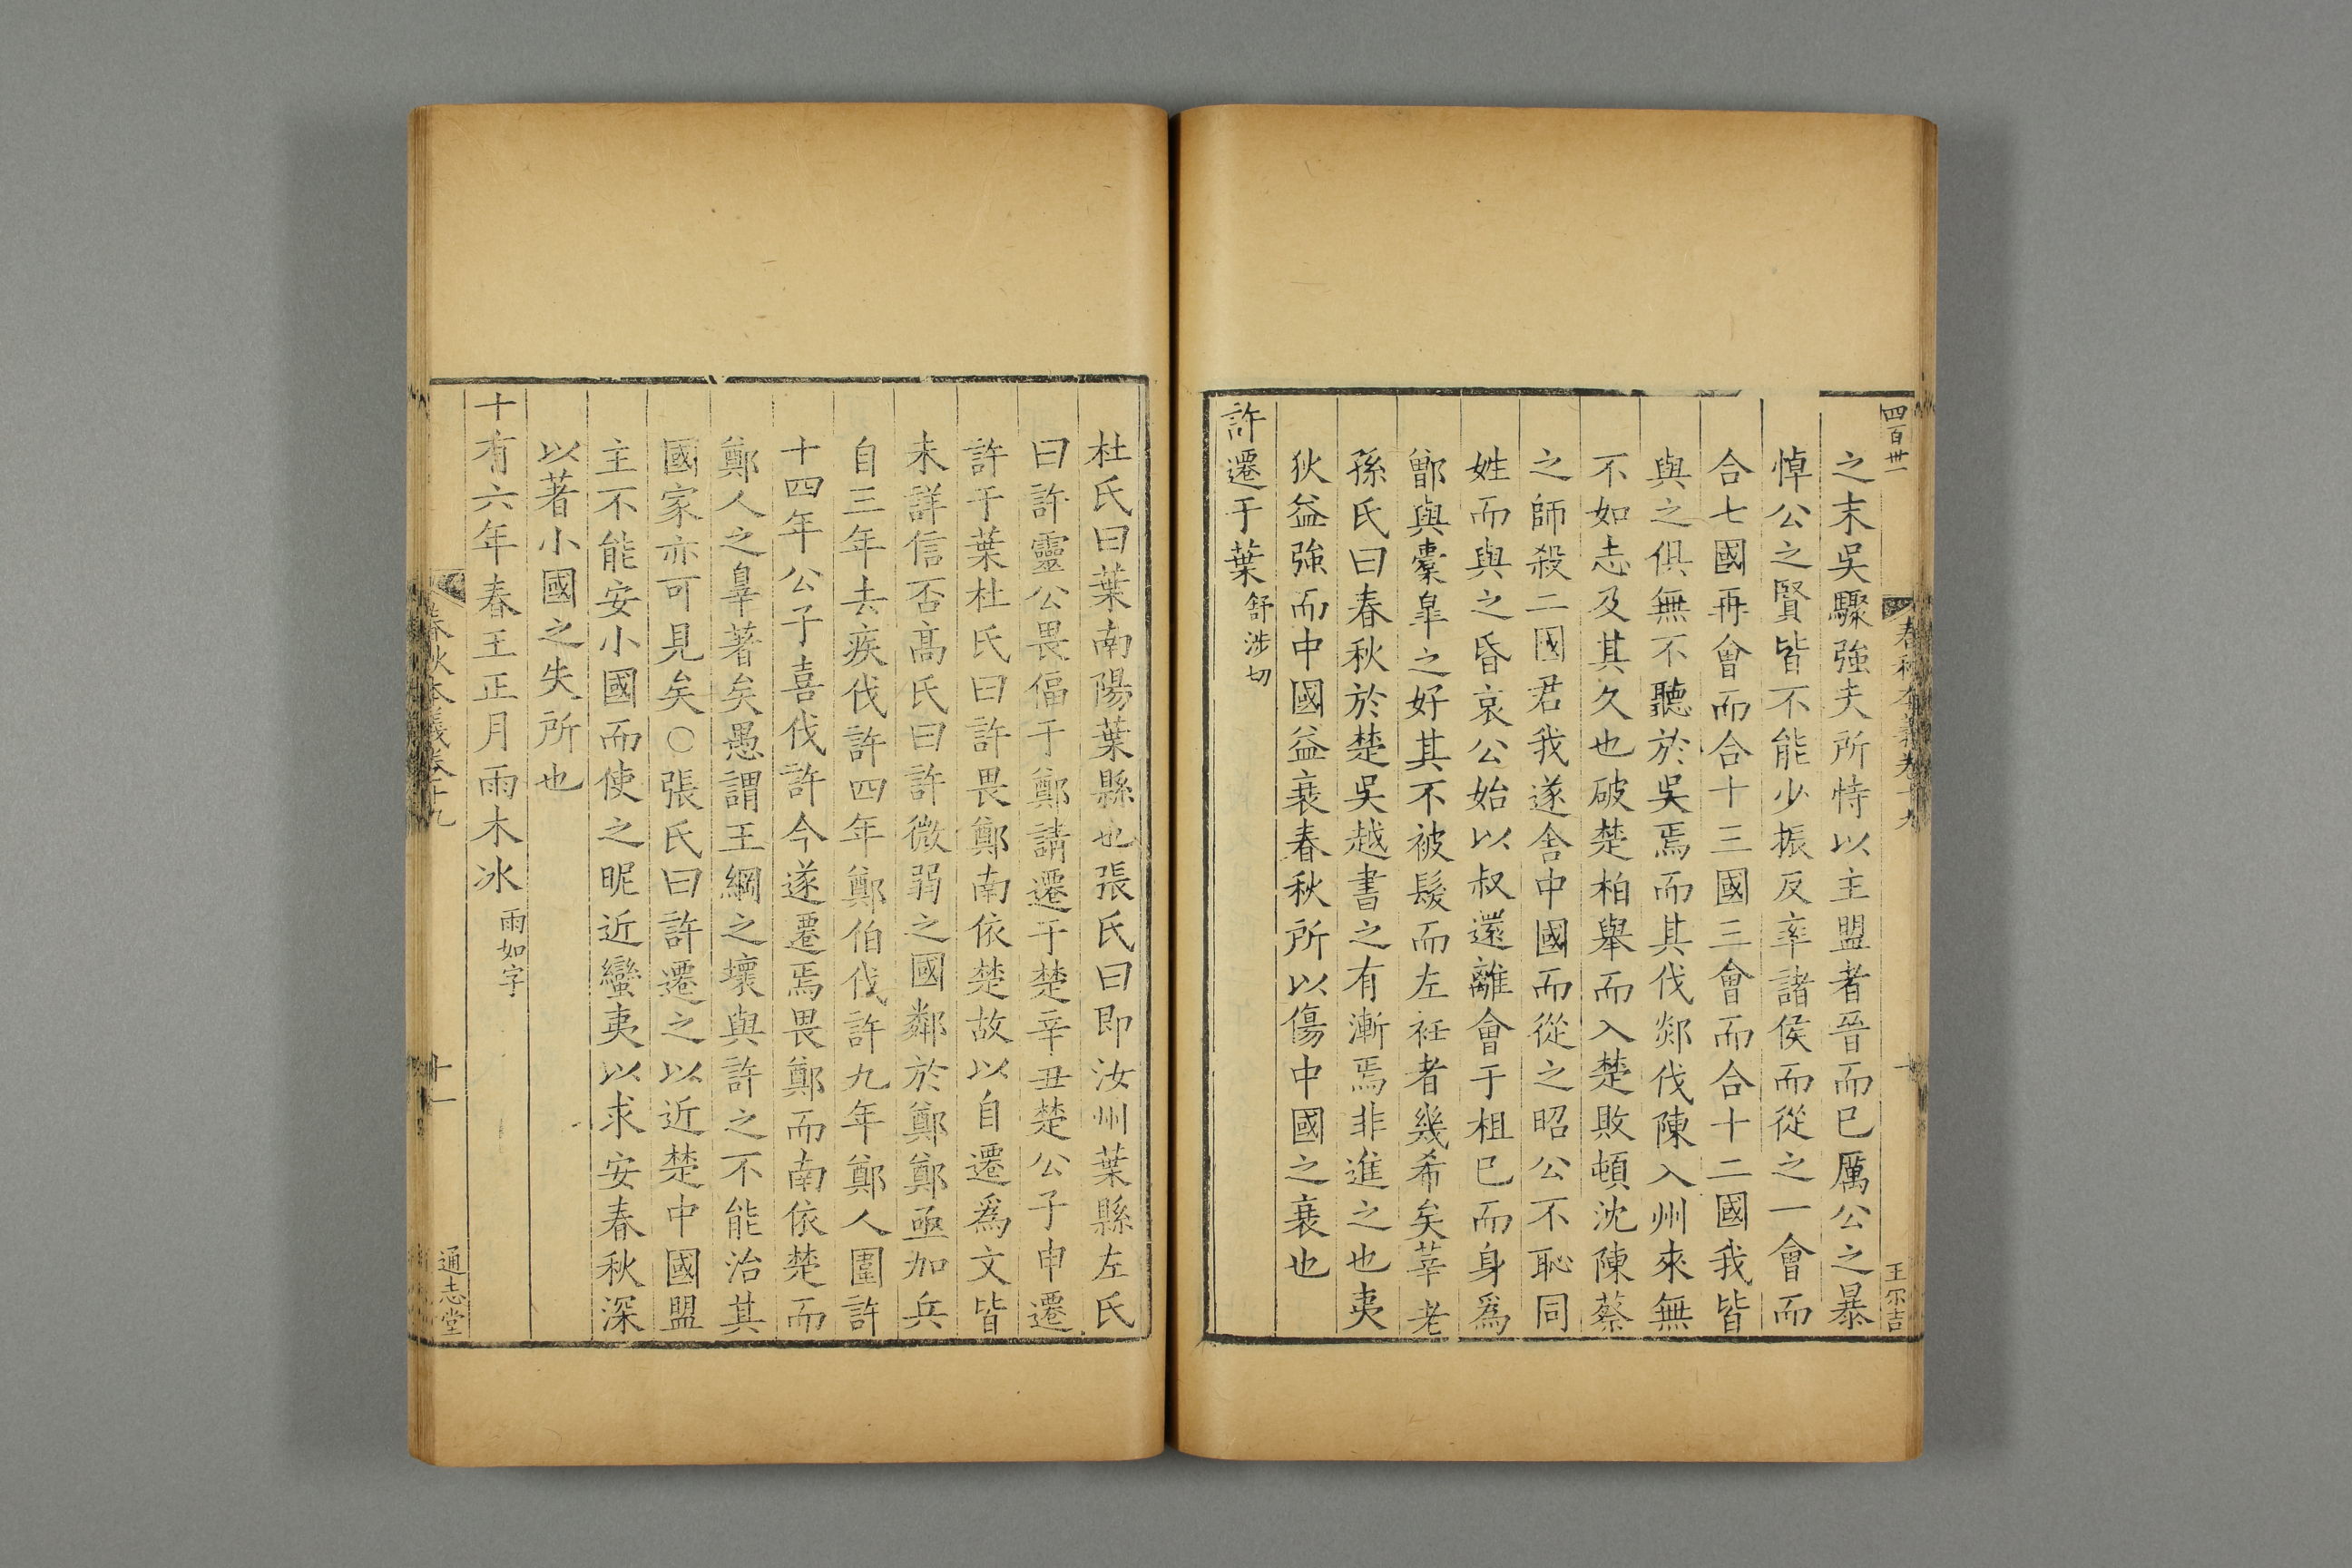 四百卅一
春秋本義卷十九
十
王尔吉
之末吳驟強夫所恃以主盟者晉而已厲公之暴
悼公之賢皆不能少振反率諸侯而從之一會而
合七國再會而合十三國三會而合十二國我皆
與之俱無不聽於吳焉而其伐郯伐陳入州來無
不如志及其久也破楚柏舉而入楚敗頓沈陳蔡
之師殺二國君我遂舍中國而從之昭公不恥同
姓而與之昏哀公始以叔還離會于柤已而身為
鄫與橐臯之好其不被髮而左衽者幾希矣莘老
孫氏曰春秋於楚吳越書之有漸焉非進之也夷
狄益強而中國益衰春秋所以傷中國之衰也
許遷于葉舒涉切
杜氏曰葉南陽葉縣也張氏曰即汝州葉縣左氏
曰許靈公畏偪于鄭請遷于楚辛丑楚公子申遷
許于葉杜氏曰許畏鄭南依楚故以自遷爲文皆
未詳信否高氏曰許微弱之國鄰於鄭鄭亟加兵
自三年去疾伐許四年鄭伯伐許九年鄭人圍許
十四年公子喜伐許今遂遷焉畏鄭而南依楚而
鄭人之辠著矣愚謂王綱之壞與許之不能治其
國家亦可見矣○張氏曰許遷之以近楚中國盟
主不能安小國而使之昵近蠻夷以求安春秋深
以著小國之失所也
十有六年春王正月雨木冰雨如字
春秋本義卷十九
十一
通志堂